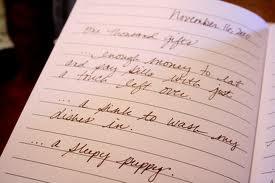 November 16, 2010
one thousand gifts
... enough money to eat
and pay bills with just
a touch left over.
... a sink to wash my
dishes in.
... a sleepy puppy.